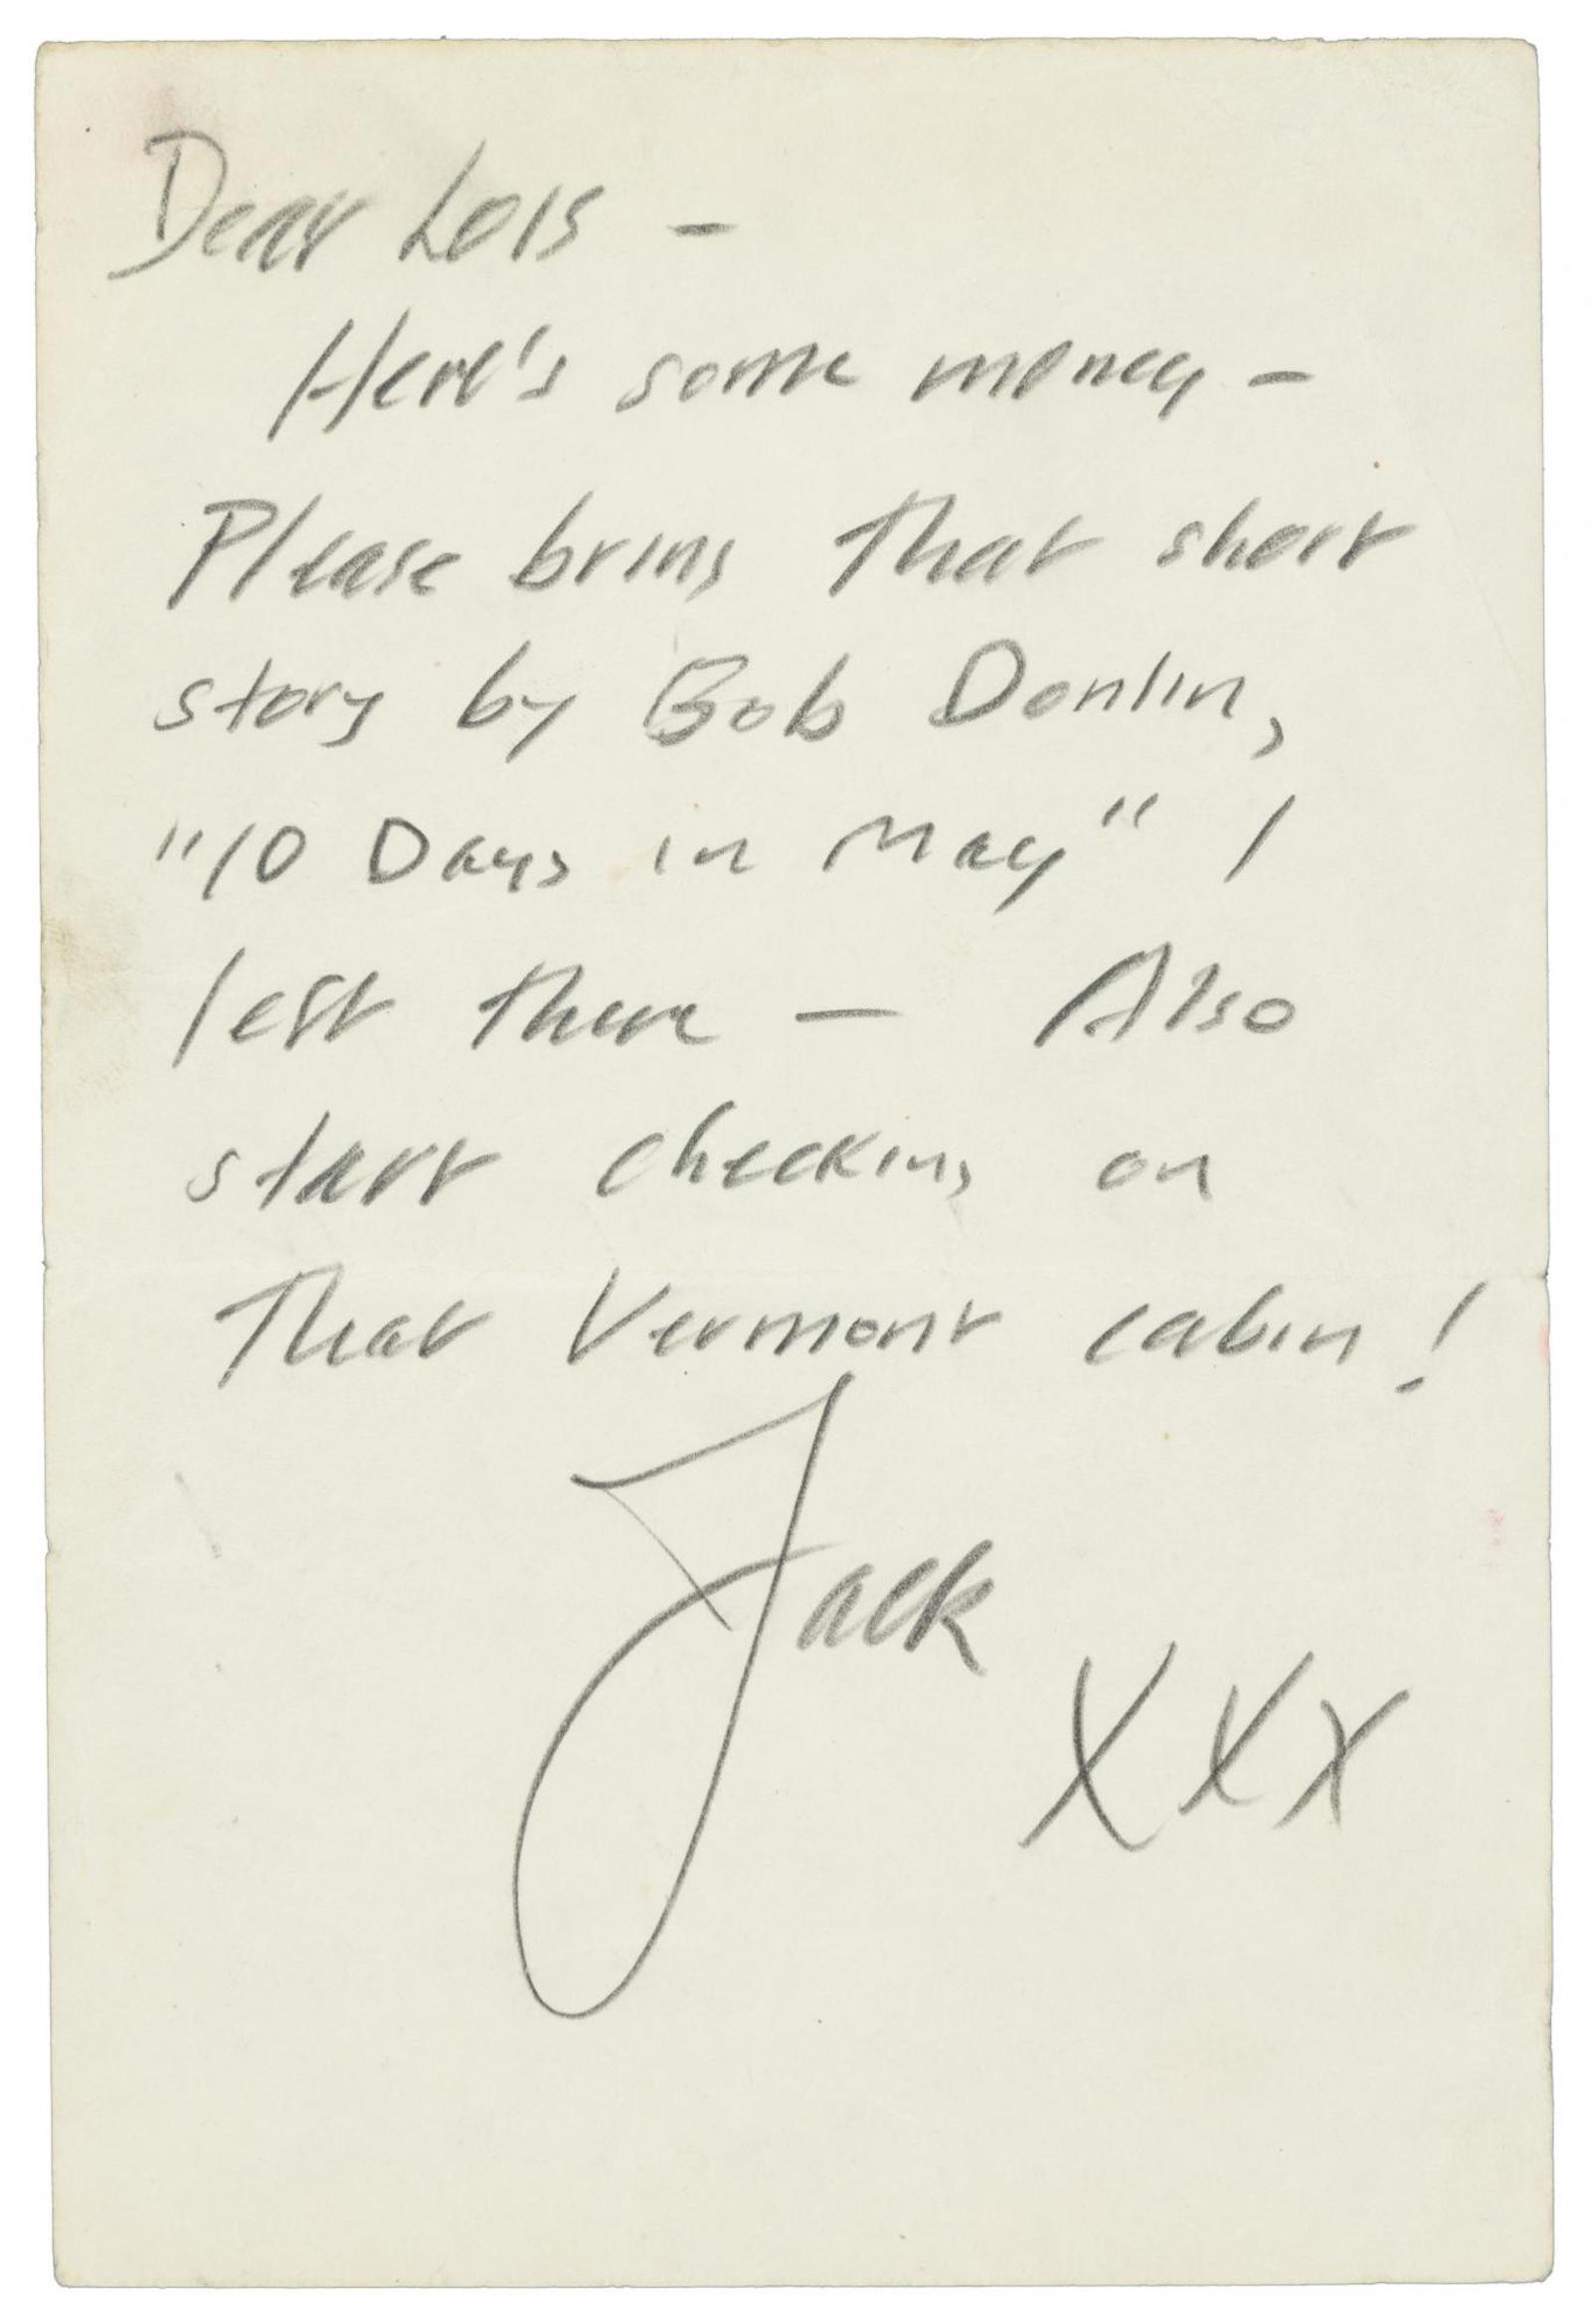 Dear Lois –
Here's some money –
Please bring that short
story by Bob Donlin,
"10 Days in May" I
left there — Also
start checking on
that Vermont cabin!
Jack
XXX